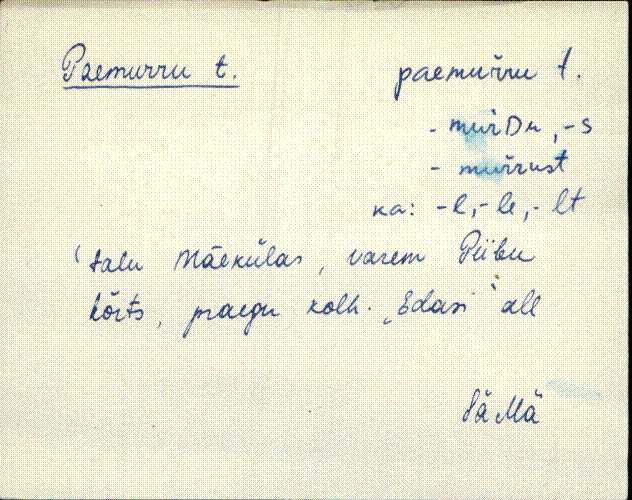 Paemurru t. paemuřru t.
- muřDu, -s
- muřrust
ka: -l, -le, -lt
talu Mäekülas, varem Piibu
kõrts, praegu kolh. „Edasi” all
Mä